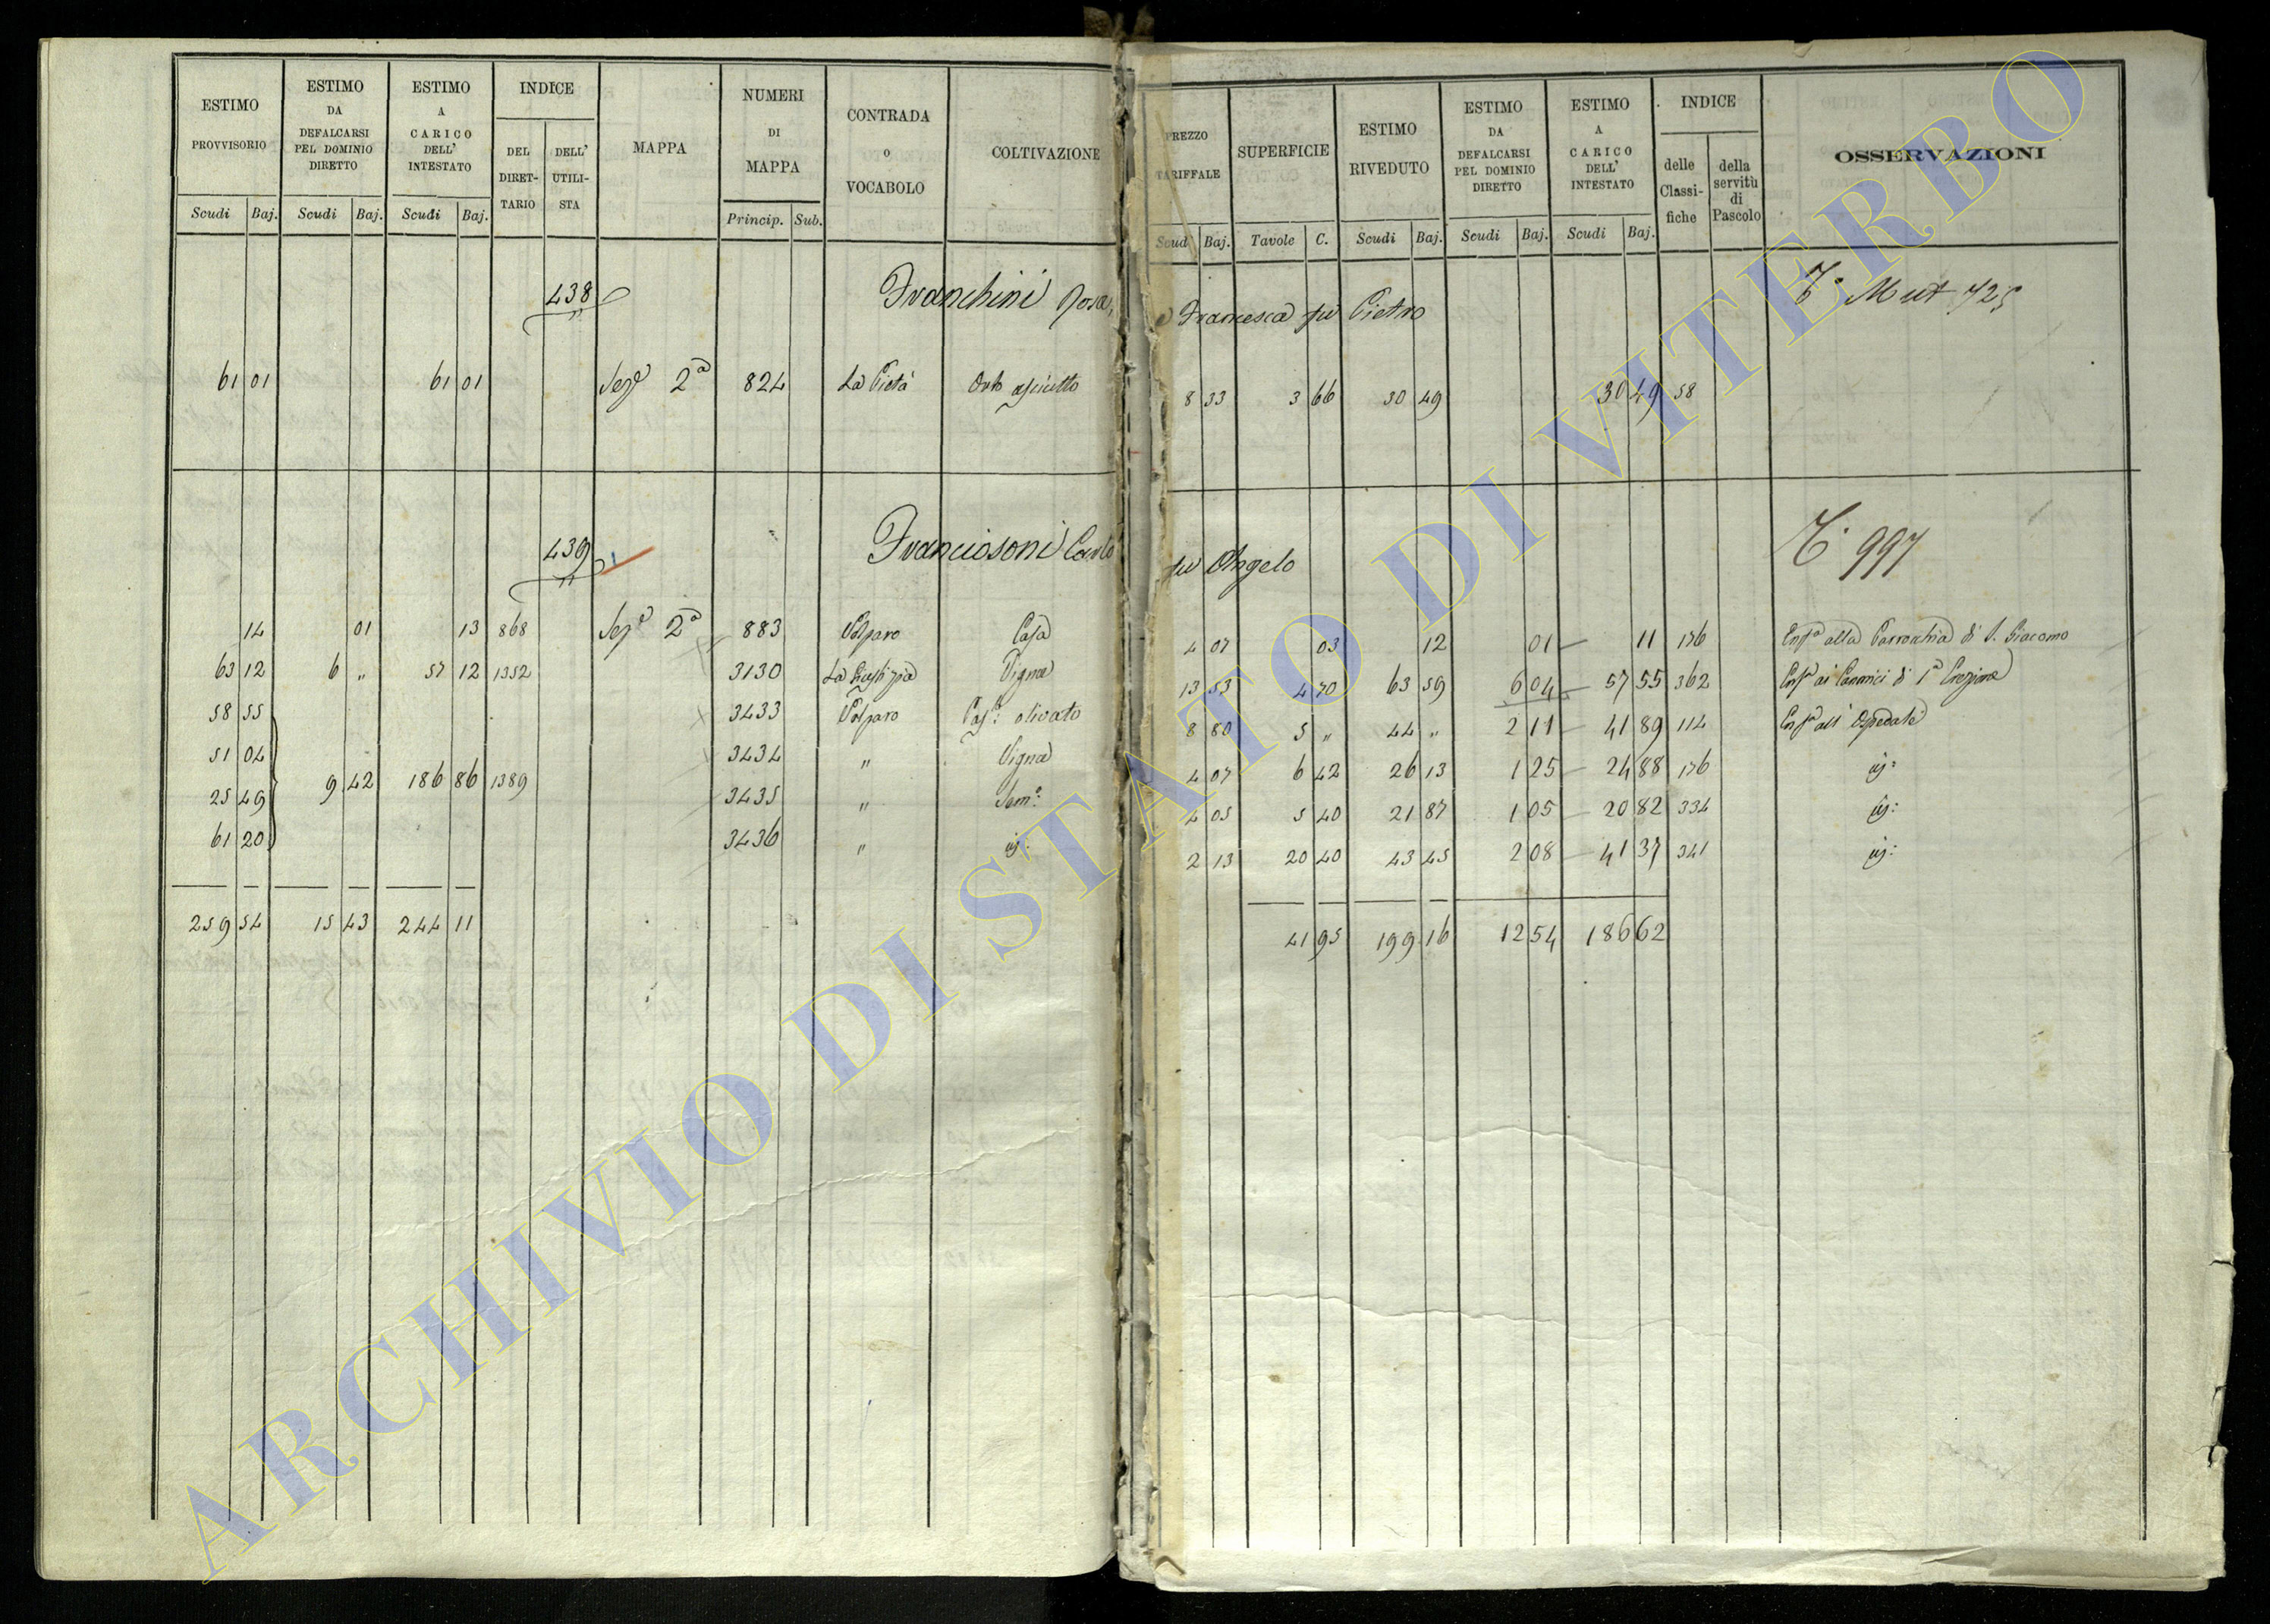 ESTIMO PROVVISORIO
ESTIMO DA DEFALCARSI PEL DOMINIO DIRETTO
ESTIMO A CARICO DELL' INTESTATO
INDICE
DEL DIRET-TARIO
DELL' UTILI-STA
MAPPA
NUMERI DI MAPPA
CONTRADA o VOCABOLO
COLTIVAZIONE
PREZZO TARIFFALE
SUPERFICIE
ESTIMO RIVEDUTO
ESTIMO DA DEFALCARSI PEL DOMINIO DIRETTO
ESTIMO A CARICO DELL' INTESTATO
INDICE
delle Classi-fiche
della servitù di Pascolo
OSSERVAZIONI
Scudi Baj. Scudi Baj. Scudi Baj. Princip. Sub. Scud Baj. Tavole C. Scudi Baj. Scudi Baj. Scudi Baj.
438 Franchini Rosa, e Francesca fu Pietro Mut 725
61 01 61 01 Sez.e 2a 824 La Pietà Orto asciutto 8 33 3 66 30 49 30 49 58
439 Franciosoni Carlo fu Angelo 997
14 01 13 868 Sez.e 2a 883 Volparo Casa 4 07 03 12 01 11 176 Enf.a alla Parrocchia di S. Giacomo
63 12 6 " 57 12 1352 3130 La Giustizia Vigna 13 53 4 70 63 59 6 04 57 55 362 Enf.a ai Canonici di 1a Erezione
58 55 3433 Volparo Pas.o olivato 8 80 5 " 44 " 2 11 41 89 114 Enf.a all' Ospedale
51 04 3434 " Vigna 4 07 6 42 26 13 1 25 24 88 176 id:
9 42 186 86 1389
25 49 3435 " Sem.o 4 05 5 40 21 87 1 05 20 82 334 id:
61 20 3436 " id: 2 13 20 40 43 45 2 08 41 37 341 id:
259 54 15 43 244 11 41 95 199 16 12 54 186 62
ARCHIVIO DI STATO DI VITERBO